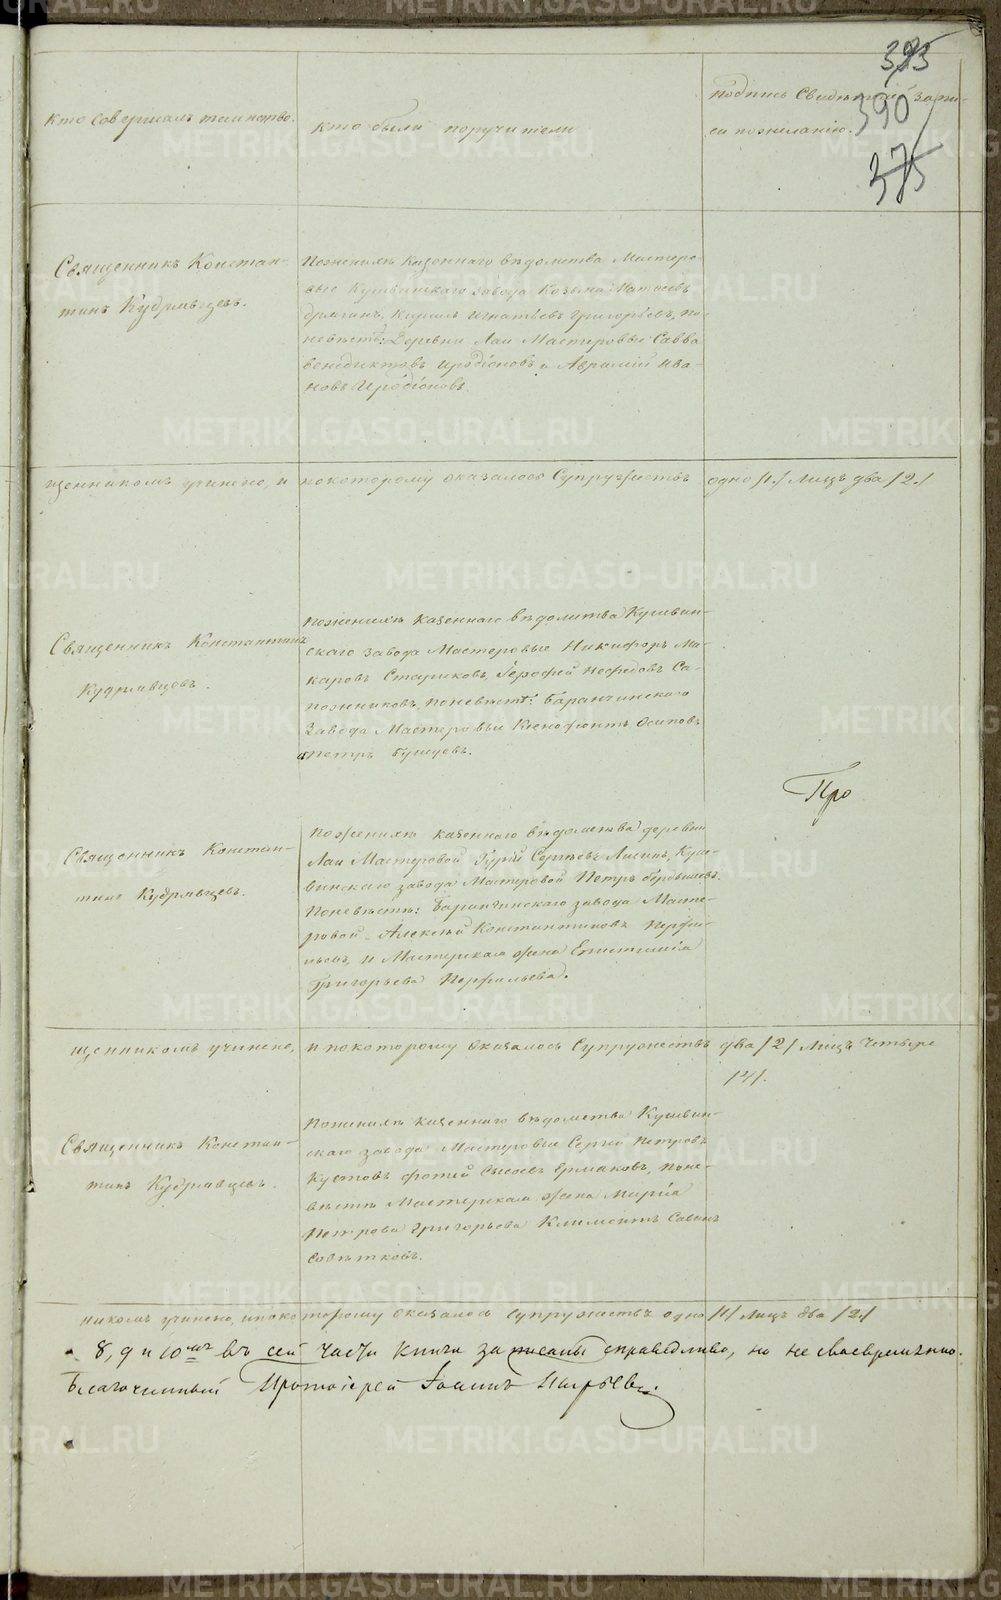 393
390
375
Кто совершалъ таинство.
Кто были поручители
подпись Свидѣтелей запи-
си пожеланію.
Священникъ Констан-
тинъ Кудрявцевъ.
Пожениху казеннаго вѣдомства Мастеро-
вые Кушвинскаго завода Козьма Матѳеевъ
Кирилъ Игнатьевъ Григорьевъ, по
невѣстѣ: Деревни Лаи Мастеровые Савва
Венедиктовъ Иродіоновъ и Аврамій Ива-
новъ Иродіоновъ.
щенникомъ учинено, и покоторому оказалось Супружествъ одно /1./ Лицъ два /2./
Священникъ Константинъ
Кудрявцевъ.
Пожениху казеннаго вѣдомства Кушвин-
скаго завода Мастеровые Никифоръ Ма-
каровъ Стариковъ, Ерофей Нефедовъ Са-
пожниковъ, поневѣстѣ: Баранчинскаго
Завода Мастеровые Ксенофонтъ Осиповъ
и Петръ
Про
Священникъ Констан-
тинъ Кудрявцевъ.
Пожениху казеннаго вѣдомства деревни
Лаи Мастеровой Гурій Сергѣевъ Куш-
винскаго завода Мастеровой Петръ
Поневѣстѣ: Баранчинскаго завода Масте-
ровой Алексѣй Константиновъ Перфи-
льевъ, и Мастерская жена Епистимія
Григорьева Перфильева.
щенникомъ учинено, и покоторому оказалось Супружествъ два /2/ Лицъ четыре
/4/.
Священникъ Констан-
тинъ Кудрявцевъ.
Пожениху казеннаго вѣдомства Кушвин-
скаго завода Мастеровые Сергій Петровъ
Кустовъ Фотей Сысоевъ Ермаковъ, поне-
вѣстѣ Мастерская жена Марія
Петрова Григорьева Климентъ Савинъ
Совѣтковъ.
никомъ учинено, и покоторому оказалось Супружествъ одно /1/ Лицъ два /2/
8, 9 и 10мъ въ сей части книги записаны справедливо, но не своевременно.
Благочинный Протоіерей Іоаннъ
METRIKI.GASO-URAL.RU